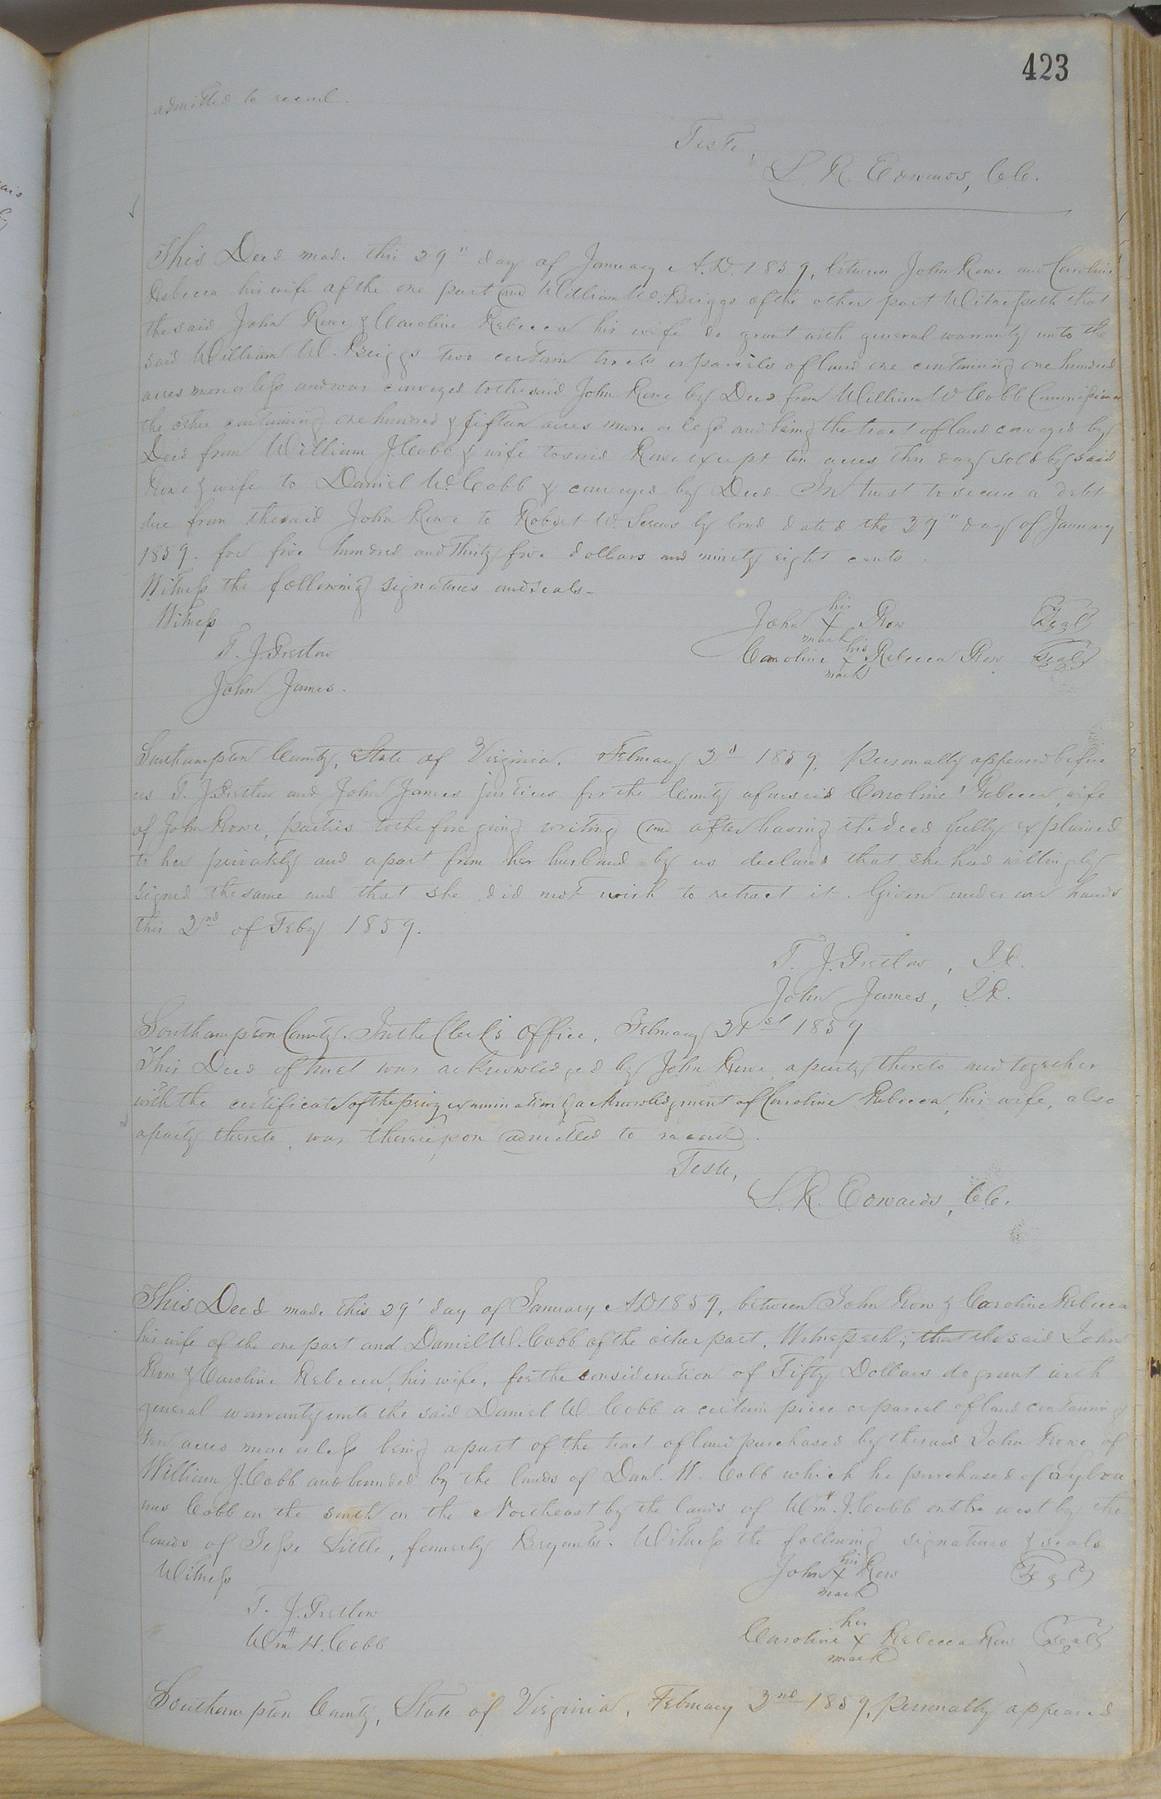 423
admitted to record.
Teste,
L. R. Edwards, C.C.
This Deed made this 29" day of January A.D. 1859, between John Rowe and Caroline
Rebecca his wife of the one part and William W. Briggs of the other part Witnesseth that
the said John Rowe & Caroline Rebecca his wife do grant with general warranty unto the
said William W. Briggs two certain tracts or parcels of land one containing one hundred
acres more or less and was conveyed to the said John Rowe by Deed from William W Cobb Commissioner
the other containing one hundred & fifteen acres more or less and being the tract of land conveyed by
Deed from William J. Cobb & wife to said Rowe except ten acres this day sold by said
Rowe & wife to Daniel W. Cobb & conveyed by Deed. In trust to secure a debt
due from the said John Rowe to Robert W. by bond dated the 29" day of January
1859. for five hundred and thirty five dollars and ninety eight cents.
Witness the following signatures and seals-
Witness
John his X mark Row Seal
T. J. Pretlow
Caroline his X mark Rebecca Row Seal
John James.
Southampton County, State of Virginia. February 2d 1859, Personally appeared before
us T. J. Pretlow and John James justices for the County aforesaid Caroline Rebecca wife
of John Rowe, parties to the foregoing writing and after having the deed fully explained
to her privately and apart from her husband by us declared that she had willingly
signed the same and that she did not wish to retract it. Given under our hands
this 2nd of Feby 1859.
T. J. Pretlow, J.P.
John James, J.P.
Southampton County. In the Clerk's Office, February 21st 1859
This Deed of trust was acknowledged by John Rowe, a party thereto and together
with the certificate of the privy examination & acknowledgment of Caroline Rebecca, his wife, also
a party thereto, was thereupon admitted to record.
Teste,
L. R. Edwards, C.C.
This Deed made this 29' day of January A.D 1859, between John Row & Caroline Rebecca
his wife of the one part and Daniel W. Cobb of the other part, Witnesseth; that the said John
Row & Caroline Rebecca, his wife, for the consideration of Fifty Dollars do grant with
general warranty unto the said Daniel W Cobb a certain piece or parcel of land containing
ten acres more or less being a part of the tract of land purchased by the said John Rowe of
William J. Cobb and bounded by the lands of Danl. W. Cobb which he purchased of
Cobb on the south on the Northeast by the lands of Wm. J. Cobb on the west by the
lands of Jesse Little, formerly Bryants. Witness the following signatures & seals
Witness
John his X mark Row Seal
T. J. Pretlow
Wm H. Cobb
Caroline her X mark Rebecca Row Seal
Southampton County, State of Virginia, February 2nd 1859, personally appeared